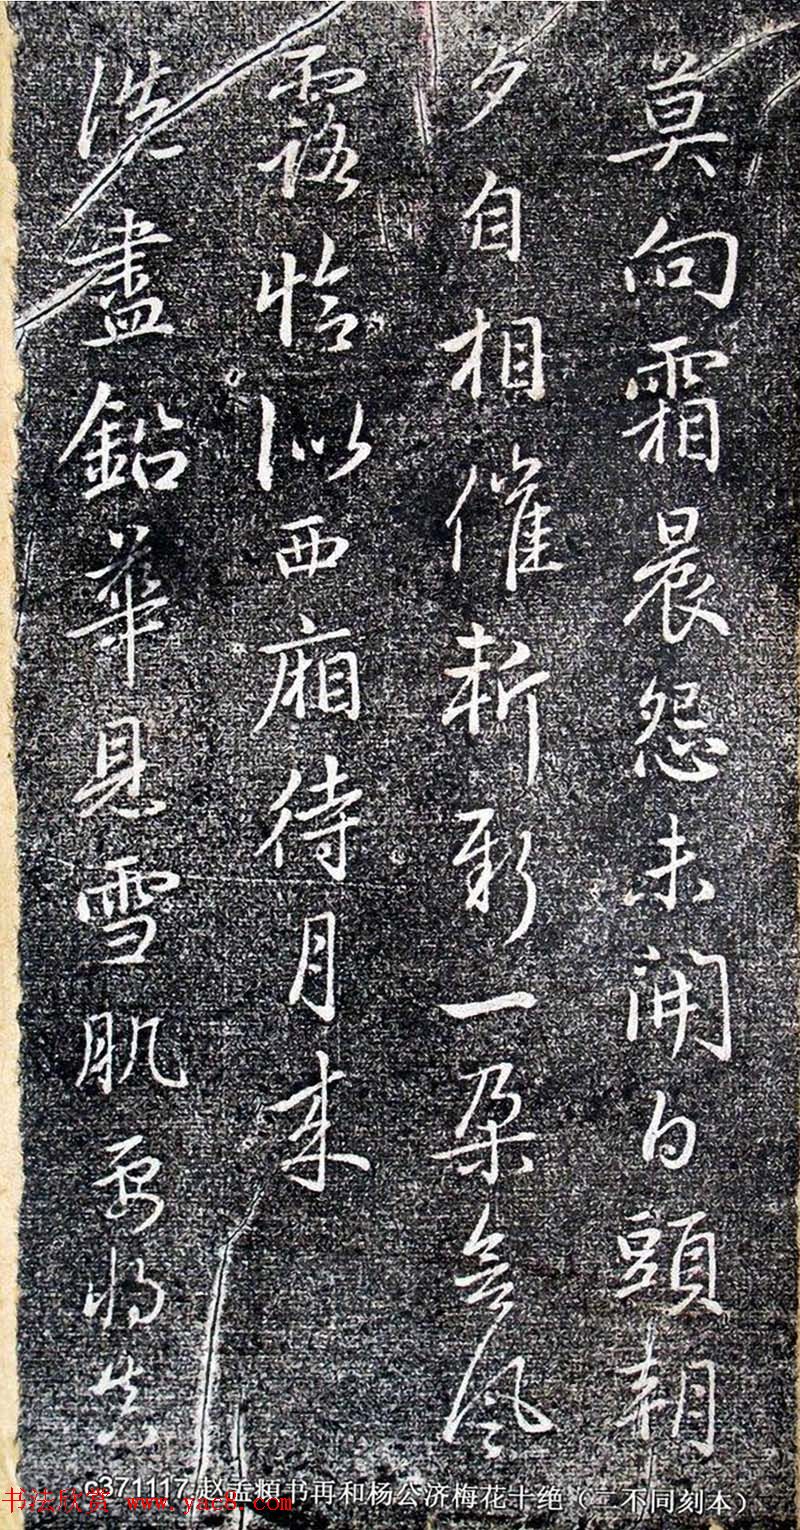 莫向霜晨怨未開白頭朝
夕自相催斬新一朵含風
露恰似西廂待月來
洗盡鉛華見雪肌要將真
c371117 赵孟頫书再和杨公济梅花十绝（二不同刻本）
书法欣赏 www.yac8.com